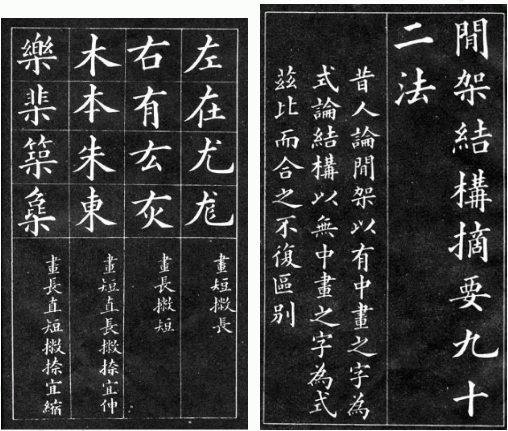 閒架結構摘要九十
二法
昔人論閒架以有中畫之字為
式論結構以無中畫之字為式
茲比而合之不復區别
左在尤尨
畫短撇長
右有厷灰
畫長撇短
木本朱東
畫短直長撇捺宜伸
樂棐築
畫長直短撇捺宜縮